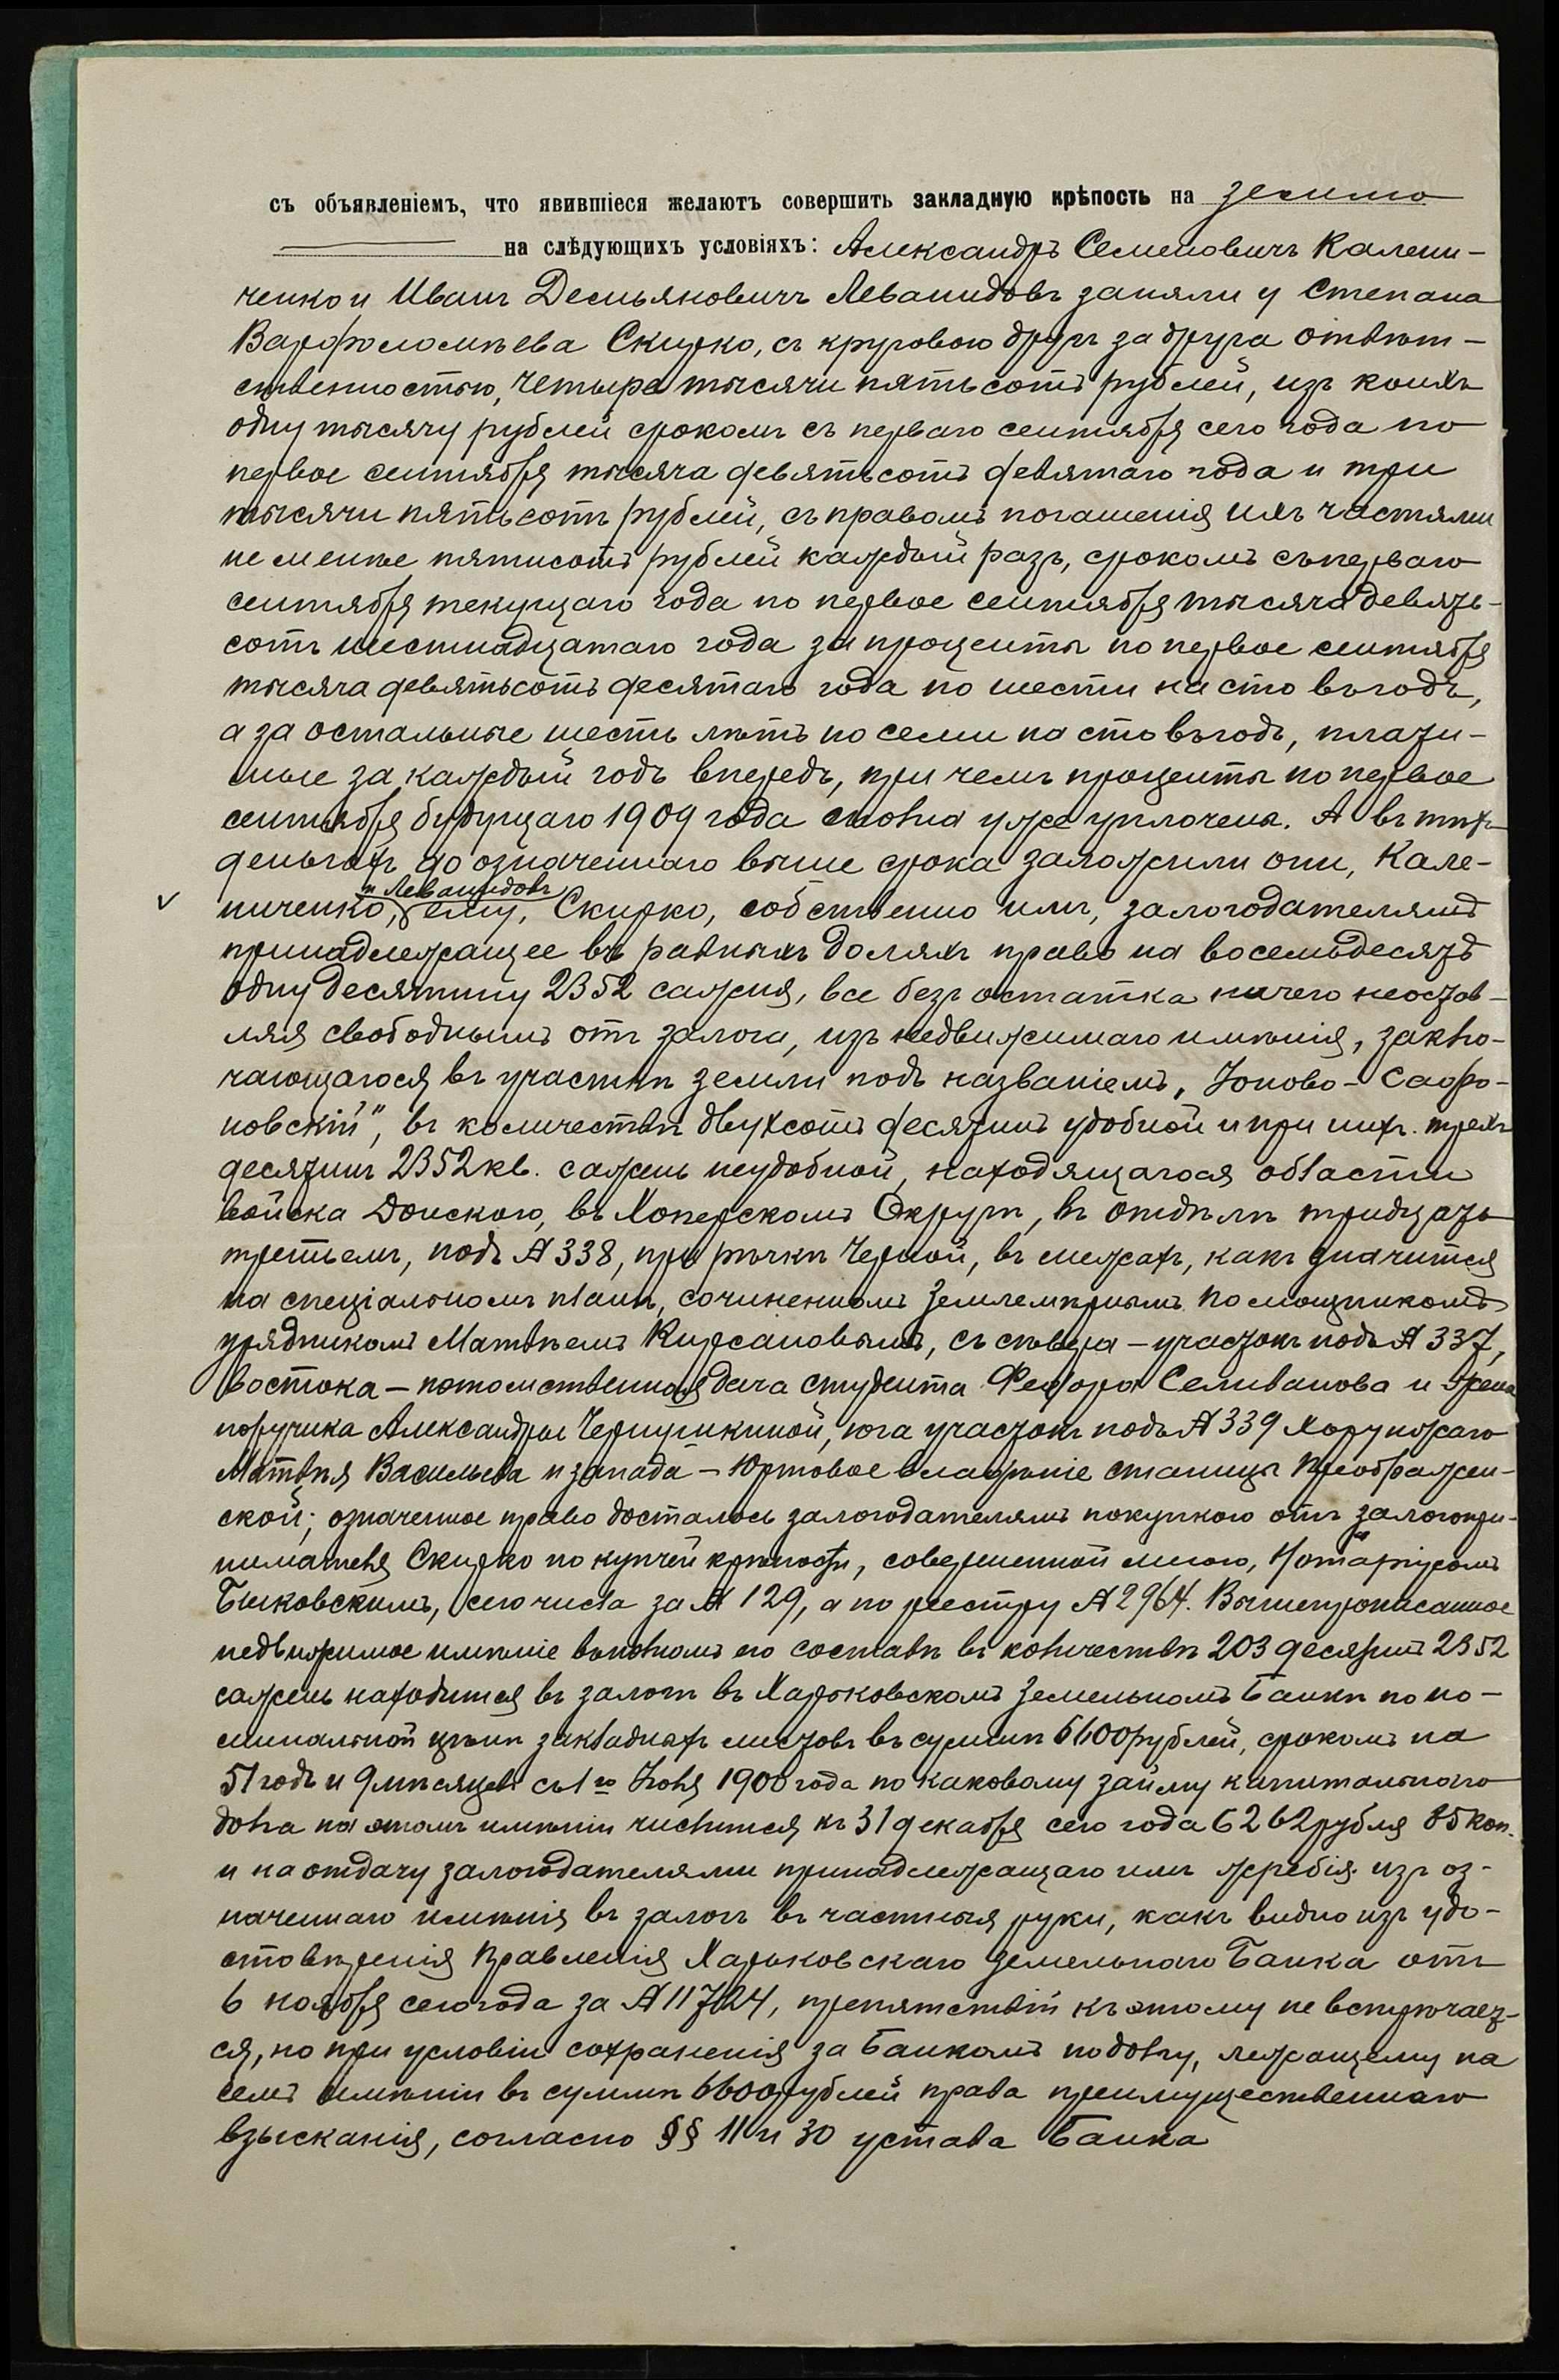 съ объявленіемъ, что явившіеся желаютъ совершить закладную крѣпость на землю
на слѣдующихъ условіяхъ: Александръ Семеновичъ Калени-
ченко и Иванъ Демьяновичъ Леванидовъ заняли у Степана
Варфоломѣева Скирко, съ круговою другъ за друга отвѣт-
ственностью, четыре тысячи пятьсотъ рублей, изъ коихъ
одну тысячу рублей срокомъ съ перваго сентября сего года по
первое сентября тысяча девятьсотъ девятаго года и три
тысячи пятьсотъ рублей, съ правомъ погашенія ихъ частями
не менѣе пятисотъ рублей каждый разъ, срокомъ съ перваго
сентября текущаго года по первое сентября тысяча девять-
сотъ шестнадцатаго года за проценты по первое сентября
тысяча девятьсотъ десятаго года по шести на сто въ годъ,
а за остальные шесть лѣтъ по семи на сто въ годъ, плати-
мые за каждый годъ впередъ, при чемъ проценты по первое
сентября будущаго 1909 года сполна уже уплочены. А въ тѣхъ
деньгахъ до означеннаго выше срока заложили они, Кале-
и Леванидовъ
ниченко, ему, Скирко, собственно имъ, залогодателямъ
принадлежащее въ равныхъ доляхъ право на восемьдесятъ
одну десятину 2352 сажня, все безъ остатка ничего не остав-
ляя свободнымъ отъ залога, изъ недвижимаго имѣнія, заклю-
чающагося въ участкѣ земли подъ названіемъ „Попово-Сафо-
новскій", въ количествѣ двухсотъ десятинъ удобной и при нихъ трехъ
десятинъ 2352 кв. сажень неудобной, находящагося области
войска Донского, въ Хоперскомъ Округѣ, въ отдѣлѣ тридцать
третьемъ, подъ № 338, при рѣчкѣ Черной, въ межахъ, какъ значится
на спеціальномъ планѣ, сочиненномъ Землемѣрнымъ помощникомъ
урядникомъ Матвѣемъ Кирсановымъ, съ сѣвера – участокъ подъ № 337,
востока – потомственная дача студента Федора Селиванова и жена
поручика Александры Чернушкиной, юга участокъ подъ № 339 Хорунжаго
Матвѣя Васильева и запада – Юртовое владѣніе станицы Преображен-
ской; означенное право досталось залогодателямъ покупкою отъ залогопри-
нимателя Скирко по купчей крѣпости, совершенной мною, Нотаріусомъ
Быковскимъ, сего числа за № 129, а по реестру № 2964. Вышепрописанное
недвижимое имѣніе въ полномъ его составѣ въ количествѣ 203 десятинъ 2352
сажень находится въ залогѣ въ Харьковскомъ Земельномъ Банкѣ по но-
минальной цѣнѣ закладныхъ листовъ въ суммѣ 6600 рублей, срокомъ на
51 годъ и 9 мѣсяцевъ съ 1го Іюля 1900 года по каковому займу капитальнаго
долга на этомъ имѣніи числится къ 31 декабря сего года 6262 рубля 85 коп.
и на отдачу залогодателями принадлежащаго имъ жребія изъ оз-
наченнаго имѣнія въ залогъ въ частныя руки, какъ видно изъ удо-
стовѣренія Правленія Харьковскаго Земельнаго Банка отъ
6 ноября сего года за № 11724, препятствій къ этому не встрѣчает-
ся, но при условіи сохраненія за Банкомъ по долгу, лежащему на
семъ имѣніи въ суммѣ 6600 рублей права преимущественнаго
взысканія, согласно §§ 11 и 30 устава Банка